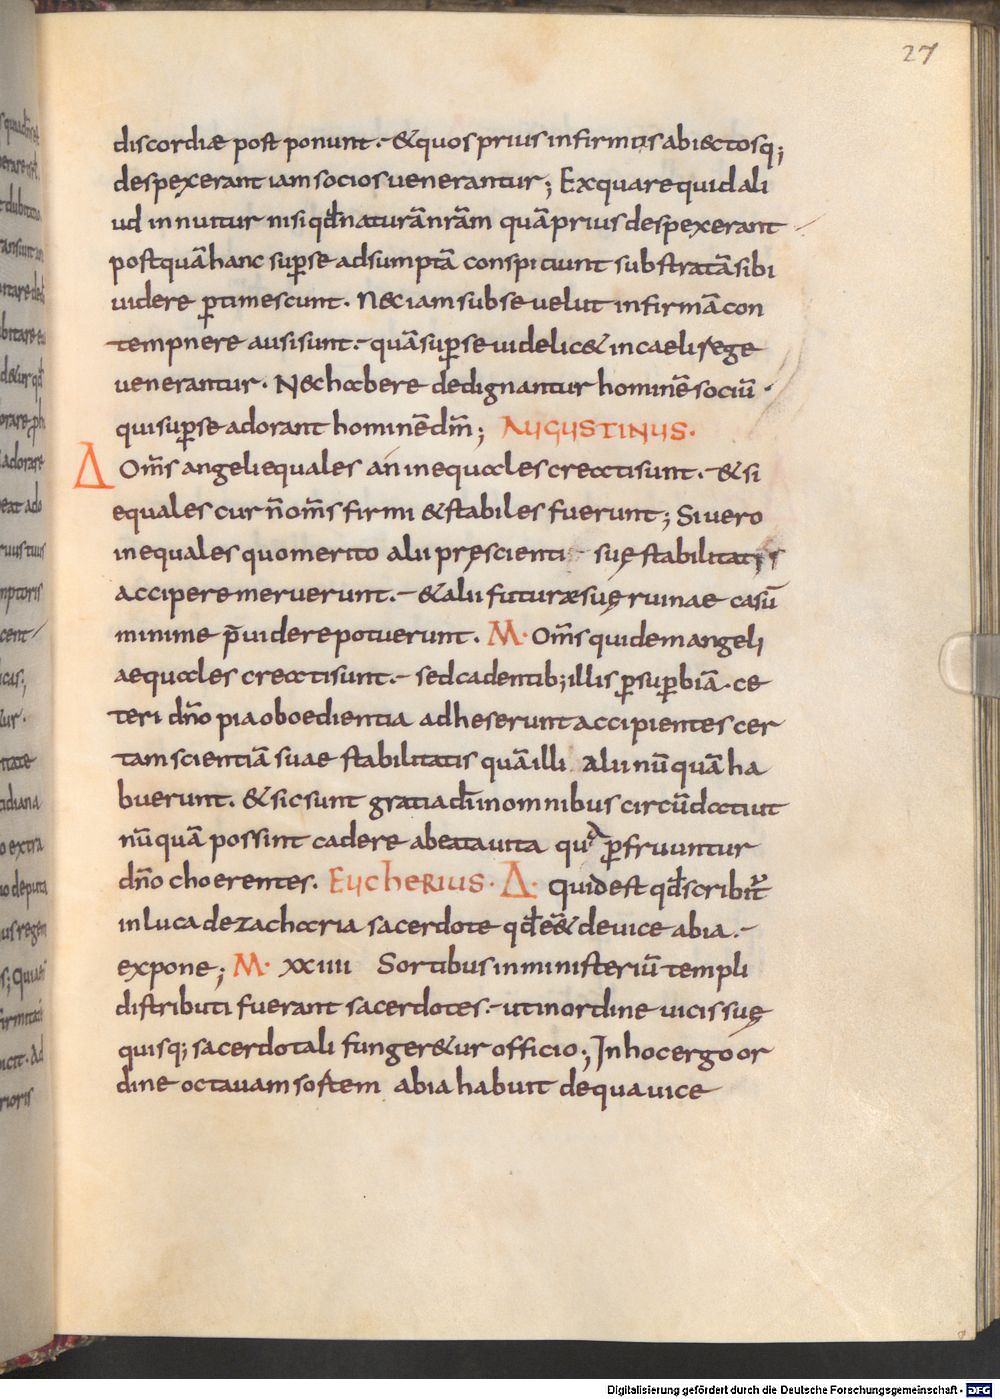 27
discordiæ post ponunt · &quos prius infirmos abiectosq;
despexerant iam socios uenerantur; Ex qua re quid ali
ud innuitur nisi qđ naturā nrām quā prius despexerant
postquā hanc sup̱ se adsumptā conspiciunt substratā sibi
uidere p̱timescunt. Nec iam sub se uelut infirmā con
tempnere ausi sunt · quā sup̱ se uidelic& in caeli rege
uenerantur. Nec habere dedignantur hominē sociū ·
qui sup̱ se adorant hominē dm̄; AUGUSTINUS.
Δ Om̄s angeli equales an inequales creati sunt · & si
equales cur n̄ om̄s firmi & stabiles fuerunt; Si uero
inequales quo merito alii pręscienti suę stabilitatis
accipere meruerunt · & alii futuræ suę ruinae casū
minime p̄uidere potuerunt. M· Om̄s quidem angeli
aequales creati sunt · sed cadentib; illis p̱ sup̱biā · ce
teri dn̄o pia oboedientia adheserunt accipientes cer
tam scientiā suae stabilitatis quā illi alii nū quā ha
buerunt. & sic sunt gratia dī in omnibus circūdati ut
nūquā possint cadere a beata uita qua p̱fruuntur
dn̄o haerentes. EUCHERIUS · Δ· quid est qđ scribit̄
in luca de zacharia sacerdote qđ eēt de uice abia ·
expone; M· XXIIII Sortibus in ministeriū templi
distributi fuerant sacerdotes · ut in ordine uicis suę
quisq; sacerdotali funger&ur officio; In hoc ergo or
dine octauam sortem abia habuit de qua uice
Digitalisierung gefördert durch die Deutsche Forschungsgemeinschaft - DFG